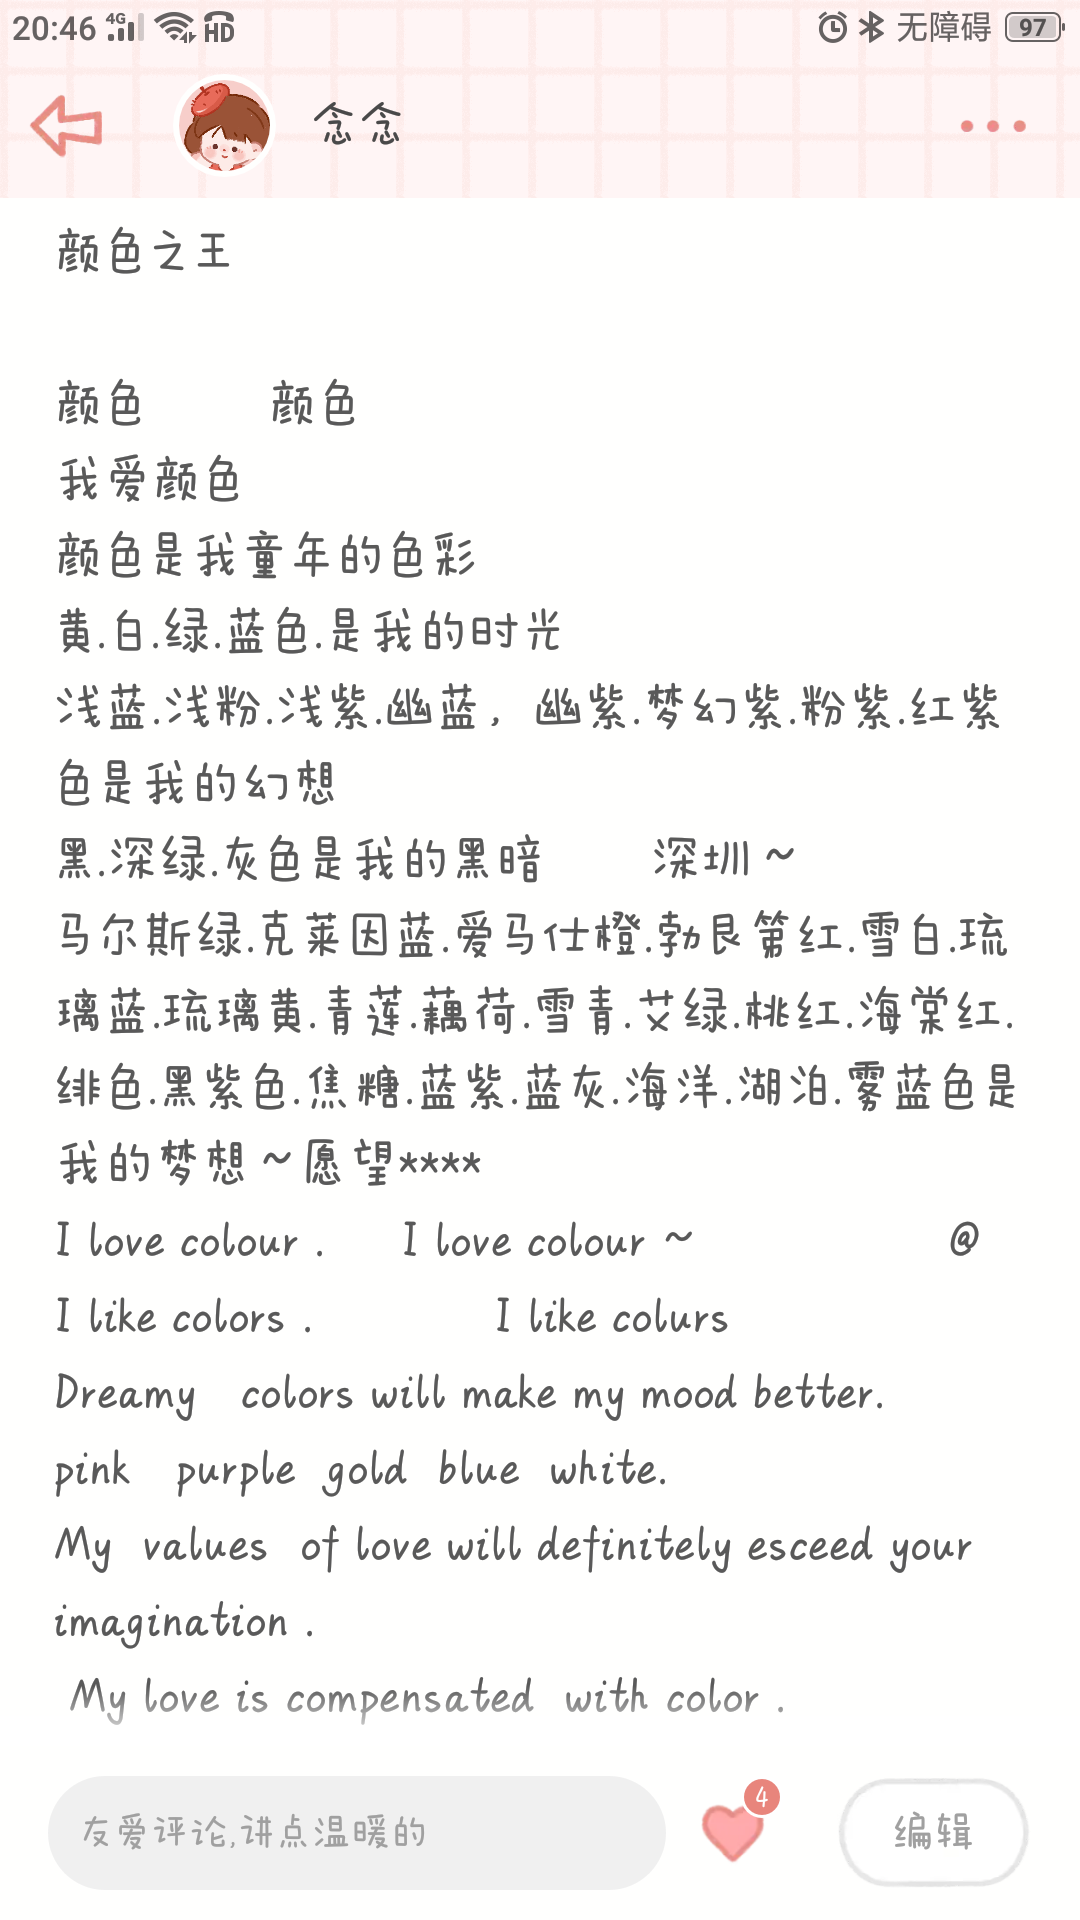 20:46 4G HD 无障碍 97
念念
颜色之王
颜色 颜色
我爱颜色
颜色是我童年的色彩
黄.白.绿.蓝色.是我的时光
浅蓝.浅粉.浅紫.幽蓝，幽紫.梦幻紫.粉紫.红紫
色是我的幻想
黑.深绿.灰色是我的黑暗 深圳~
马尔斯绿.克莱因蓝.爱马仕橙.勃艮第红.雪白.琉
璃蓝.琉璃黄.青莲.藕荷.雪青.艾绿.桃红.海棠红.
绯色.黑紫色.焦糖.蓝紫.蓝灰.海洋.湖泊.雾蓝色是
我的梦想~愿望****
I love colour . I love colour ~ @
I like colors . I like colurs
Dreamy colors will make my mood better.
pink purple gold blue white.
My values of love will definitely esceed your
imagination .
My love is compensated with color .
友爱评论,讲点温暖的 4 编辑